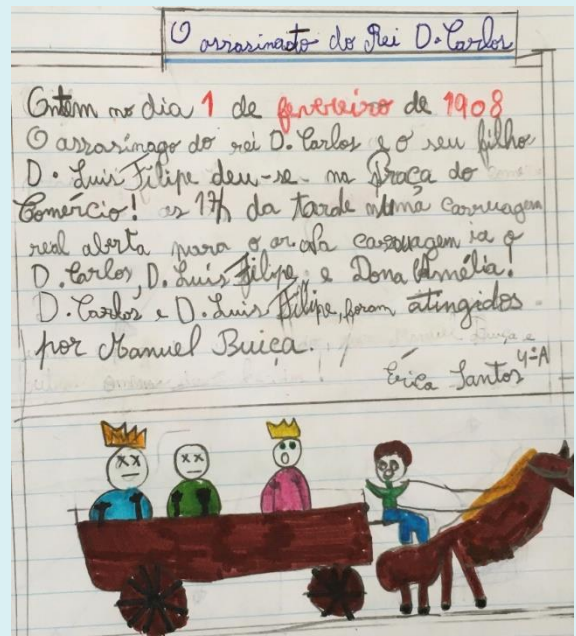 O assasinato do Rei D. Carlos
Ontem no dia 1 de fevereiro de 1908
O assasinago do rei D. Carlos e o seu filho
D. Luis Filipe deu-se na Praça do
Comércio! as 17h da tarde numa carruagem
real aberta para o ar. Na carruagem ia o
D. Carlos, D. Luis Filipe e Dona Amélia!
D. Carlos e D. Luis Filipe, foram atingidos
por Manuel Buiça.
Érica Santos 4ºA